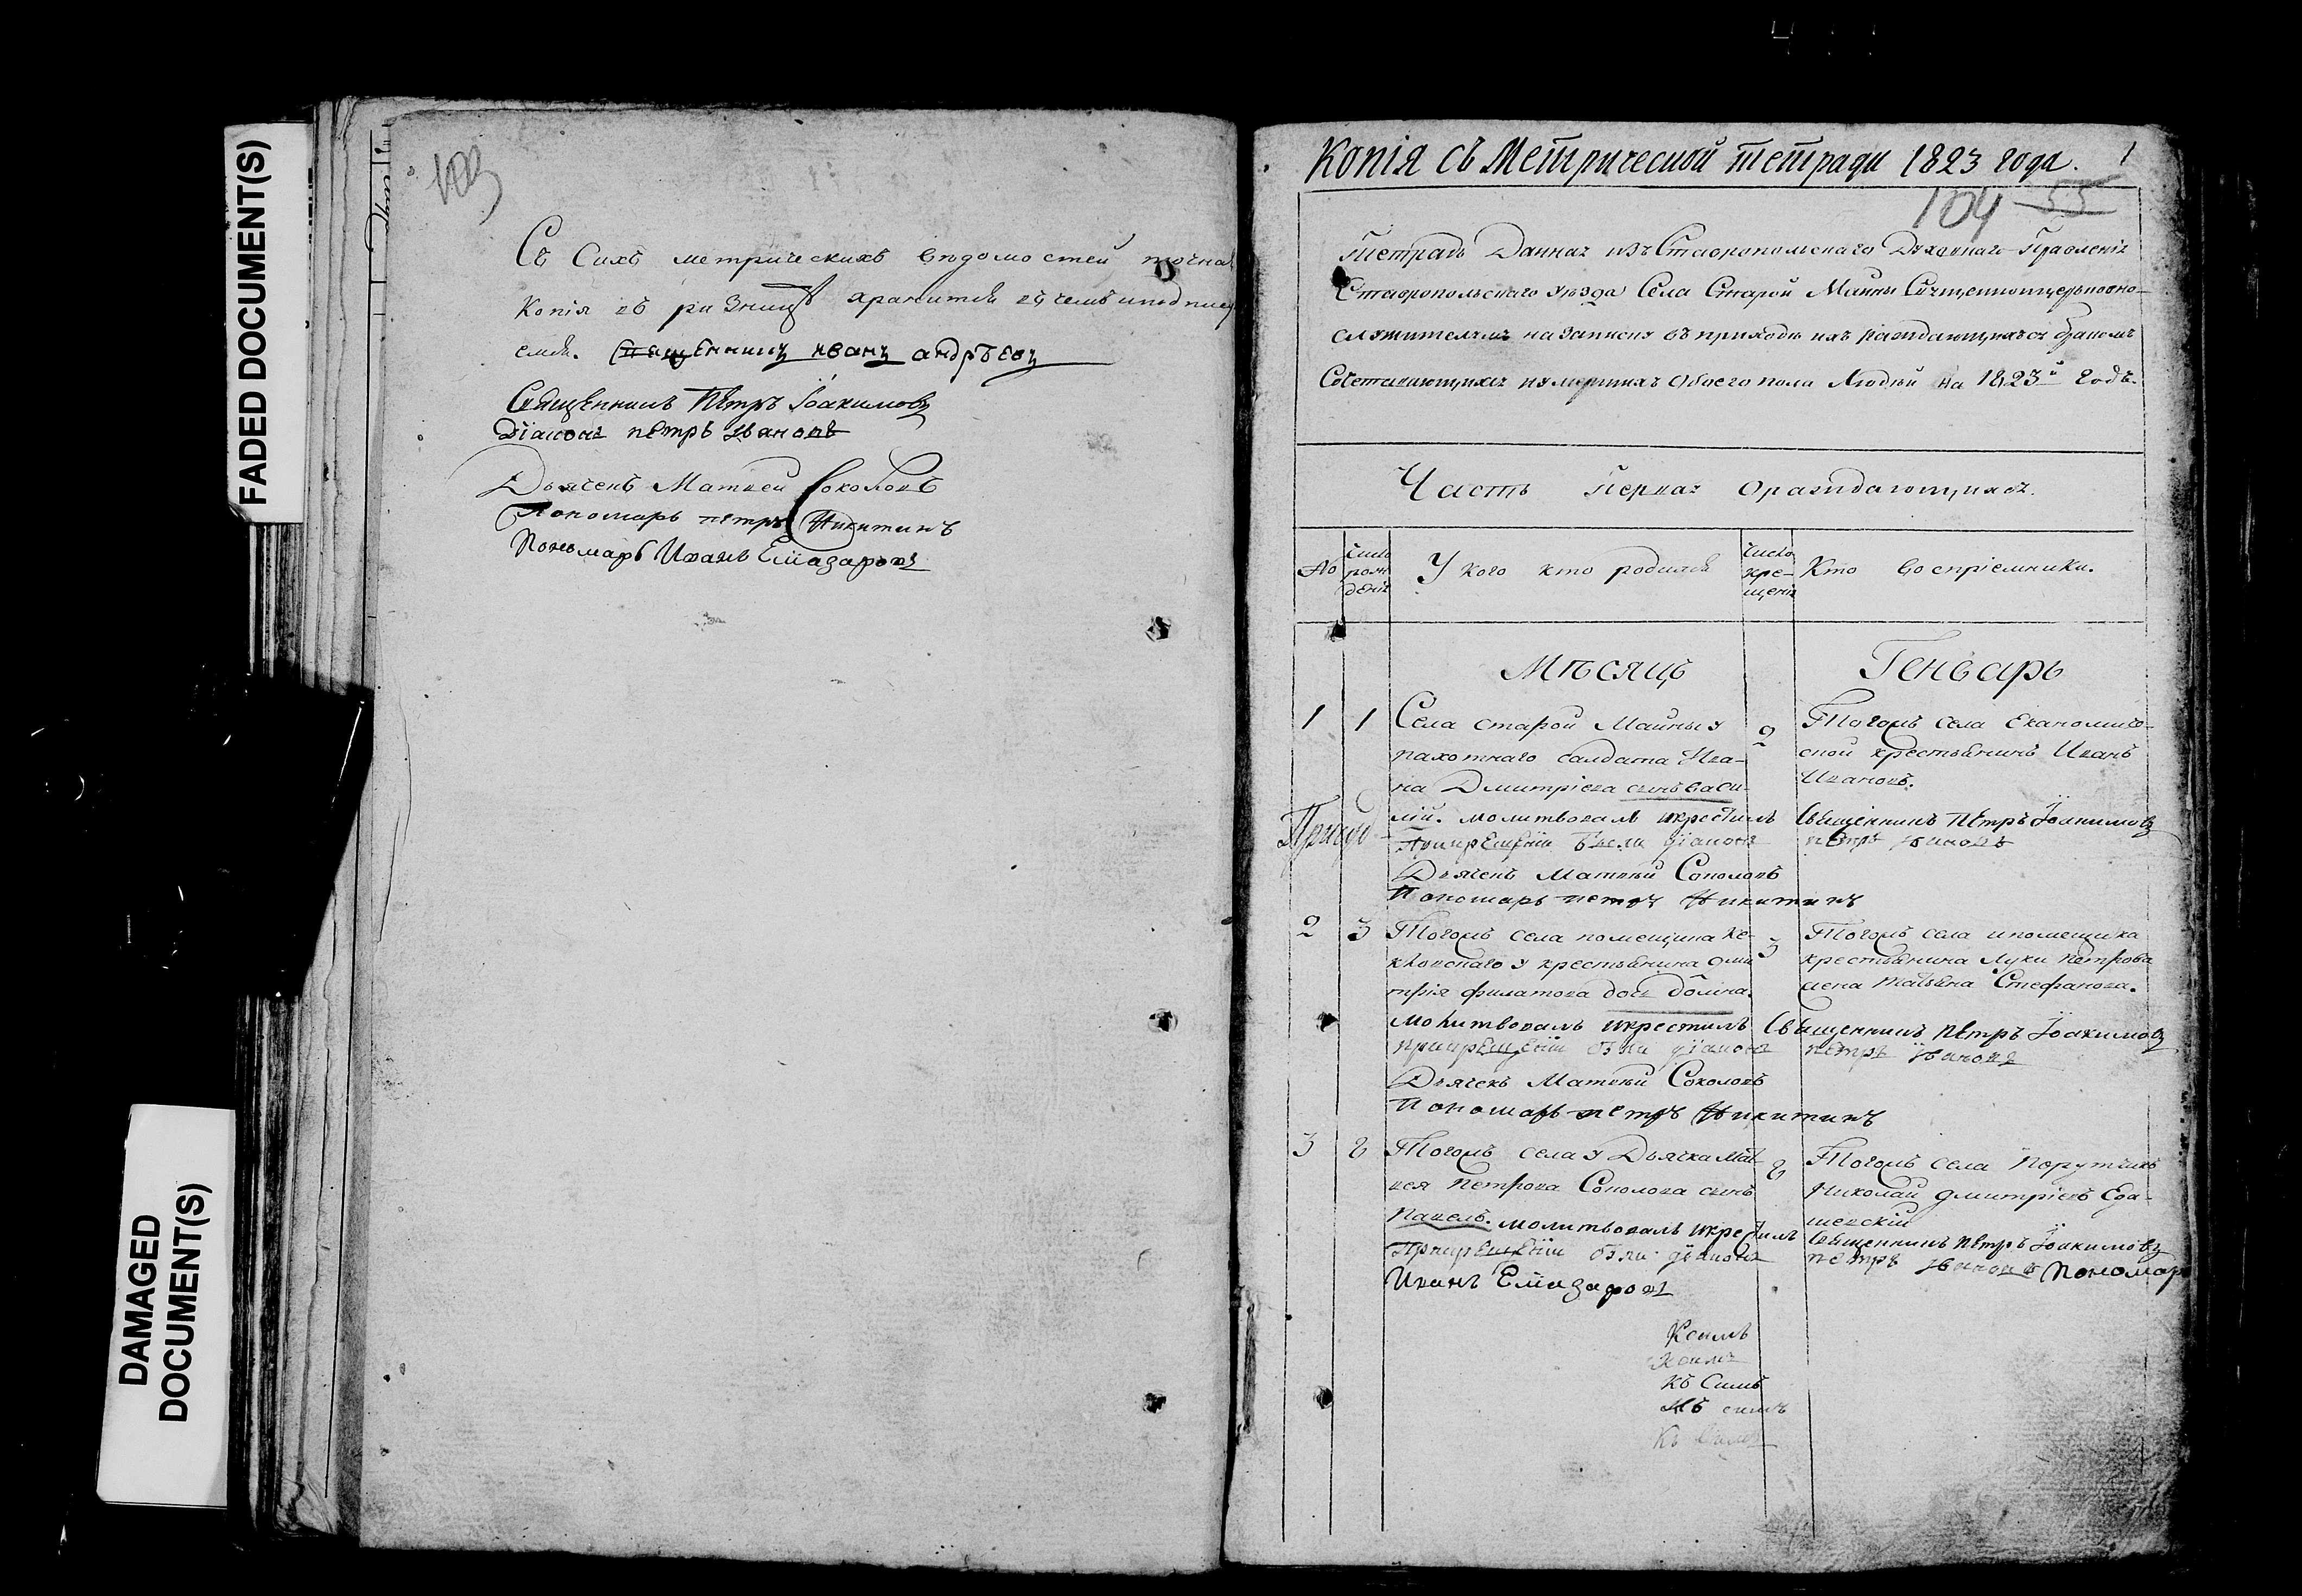 FADED DOCUMENT(S)
DAMAGED
DOCUMENT(S)
103
Съ Сихъ метрическихъ вѣдомостей точна
Копія въ ризницѣ хранится въ чемъ и подпису
емся. Священникъ иванъ андрѣевъ
Священникъ Петръ Іоакимовъ
Діаконъ петръ ивановъ
Дьячекъ Матвей Соколовъ
Пономарь петръ Никитинъ
Пономарь Иванъ Елиазаровъ
Копія съ Метрической тетради 1823 года.
1
104 55
Тетрадь Данная изъ Ставропольскаго Духовнаго Правленія
Ставропольскаго уѣзда Села Старой Майны Священноцерковно-
служителямъ на записку въ приходѣ ихъ раждающихся бракомъ
Сочетавающихся и умершихъ обоего пола Людей на 1823й Годъ.
Часть Первая О раждающихся.
№
Число рожденія
У кого кто родился
Число крещенія
Кто воспріемники.
Мѣсяцъ Генварь
1 1 Села старой Майны у
пахотнаго салдата Ива-
на Дмитріева сынъ Васи-
лій. молитвовалъ и крестилъ Священникъ Петръ Іоакимовъ
При крещеніи были діаконъ петръ ивановъ
Дьячекъ Матвей Соколовъ
Пономарь петръ Никитинъ
2 Тогожъ села Економиче-
ской крестьянинъ Иванъ
Ивановъ.
2 3 Тогожъ села помещика
у крестьянина Дми
трія филатова дочь Домна.
молитвовалъ и крестилъ Священникъ Петръ Іоакимовъ
при крещеніи были діаконъ петръ ивановъ
Дьячекъ Матвей Соколовъ
Пономарь петръ Никитинъ
3 Тогожъ села и помещика
крестьянина Луки Петрова
жена Татьяна Стефанова.
3 8 Тогожъ села у Дьячка Мат
вея Петрова Соколова сынъ
Павелъ. молитвовалъ и крестилъ Священникъ Петръ Іоакимовъ
При крещеніи были діаконъ петръ ивановъ Пономарь
Иванъ Елиазаровъ
8 Тогожъ села Порутчикъ
Николай Дмитріевъ
Къ симъ
Къ симъ
Къ Симъ
Къ симъ